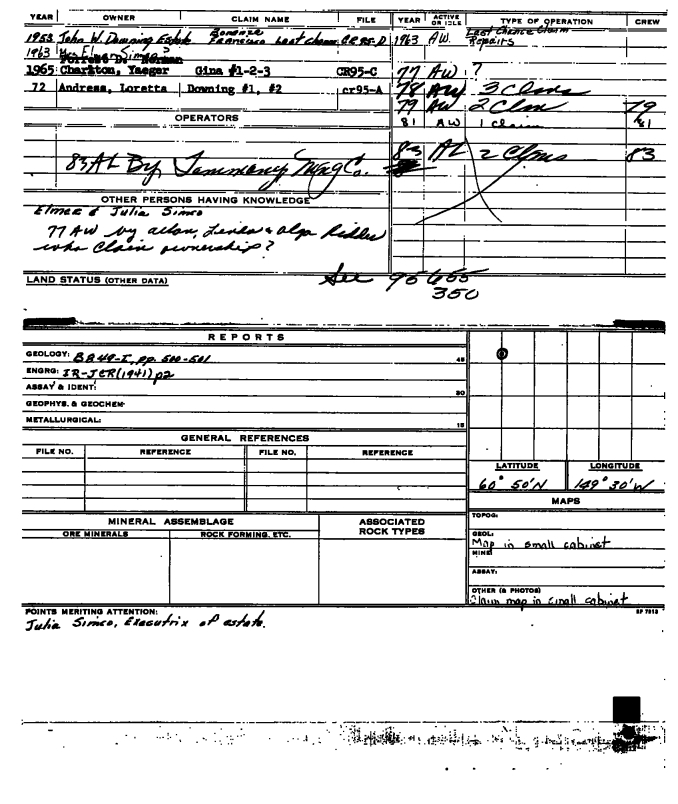 YEAR OWNER CLAIM NAME FILE YEAR ACTIVE OR IDLE TYPE OF OPERATION CREW
1953 John W. Downing Estate Bonanza Francisco Last Chance CR 95-D 1963 AW. Last Chance Claim Repairs
1963 Mrs Simco
1965 Charlton, Yaeger Gina #1-2-3 CR95-C 77 AW ?
72 Andress, Loretta Downing #1, #2 cr95-A 78 AW 3 Clms
79 AW 2 Clm 79
OPERATORS 81 AW 1 claim 81
83 AL By Tammany Mng Co. 83 AL 2 Clms 83
OTHER PERSONS HAVING KNOWLEDGE
Elmer & Julia Simco
77 AW by allan, Linda & olga
who Claim ownership?
LAND STATUS (OTHER DATA) See 95 655
350
REPORTS
GEOLOGY: BA49-I, pp. 500-501 45
ENGRG: IR-JER(1941) p2
ASSAY & IDENT: 30
GEOPHYS. & GEOCHEM.
METALLURGICAL: 15
GENERAL REFERENCES
FILE NO. REFERENCE FILE NO. REFERENCE
LATITUDE LONGITUDE
60° 50'N 149° 30'W
MAPS
MINERAL ASSEMBLAGE ASSOCIATED ROCK TYPES TOPOG:
ORE MINERALS ROCK FORMING, ETC.
GEOL: Map in small cabinet
MINE:
ASSAY:
OTHER (& PHOTOS) Claim map in small cabinet
POINTS MERITING ATTENTION:
Julia Simco, Executrix of estate.